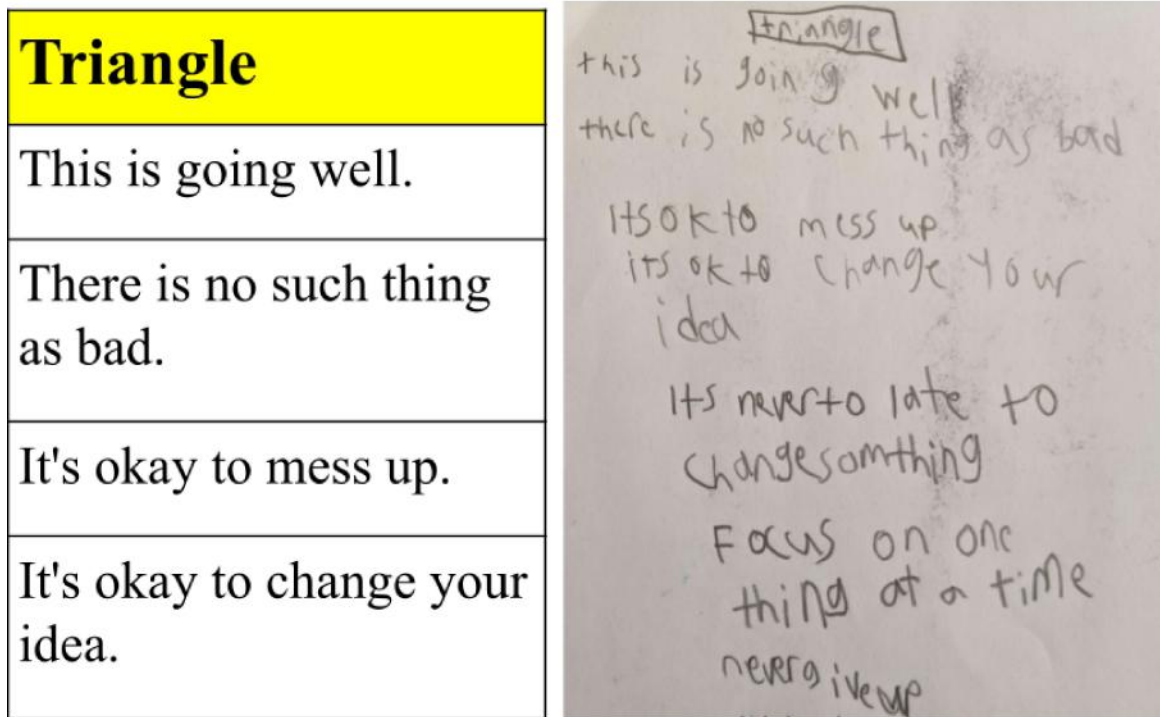 Triangle
This is going well.
There is no such thing
as bad.
It's okay to mess up.
It's okay to change your
idea.
triangle
this is going well
there is no such thing as bad
Its ok to mess up
its ok to change your
idea
Its never to late to
change somthing
Focus on one
thing at a time
never give up